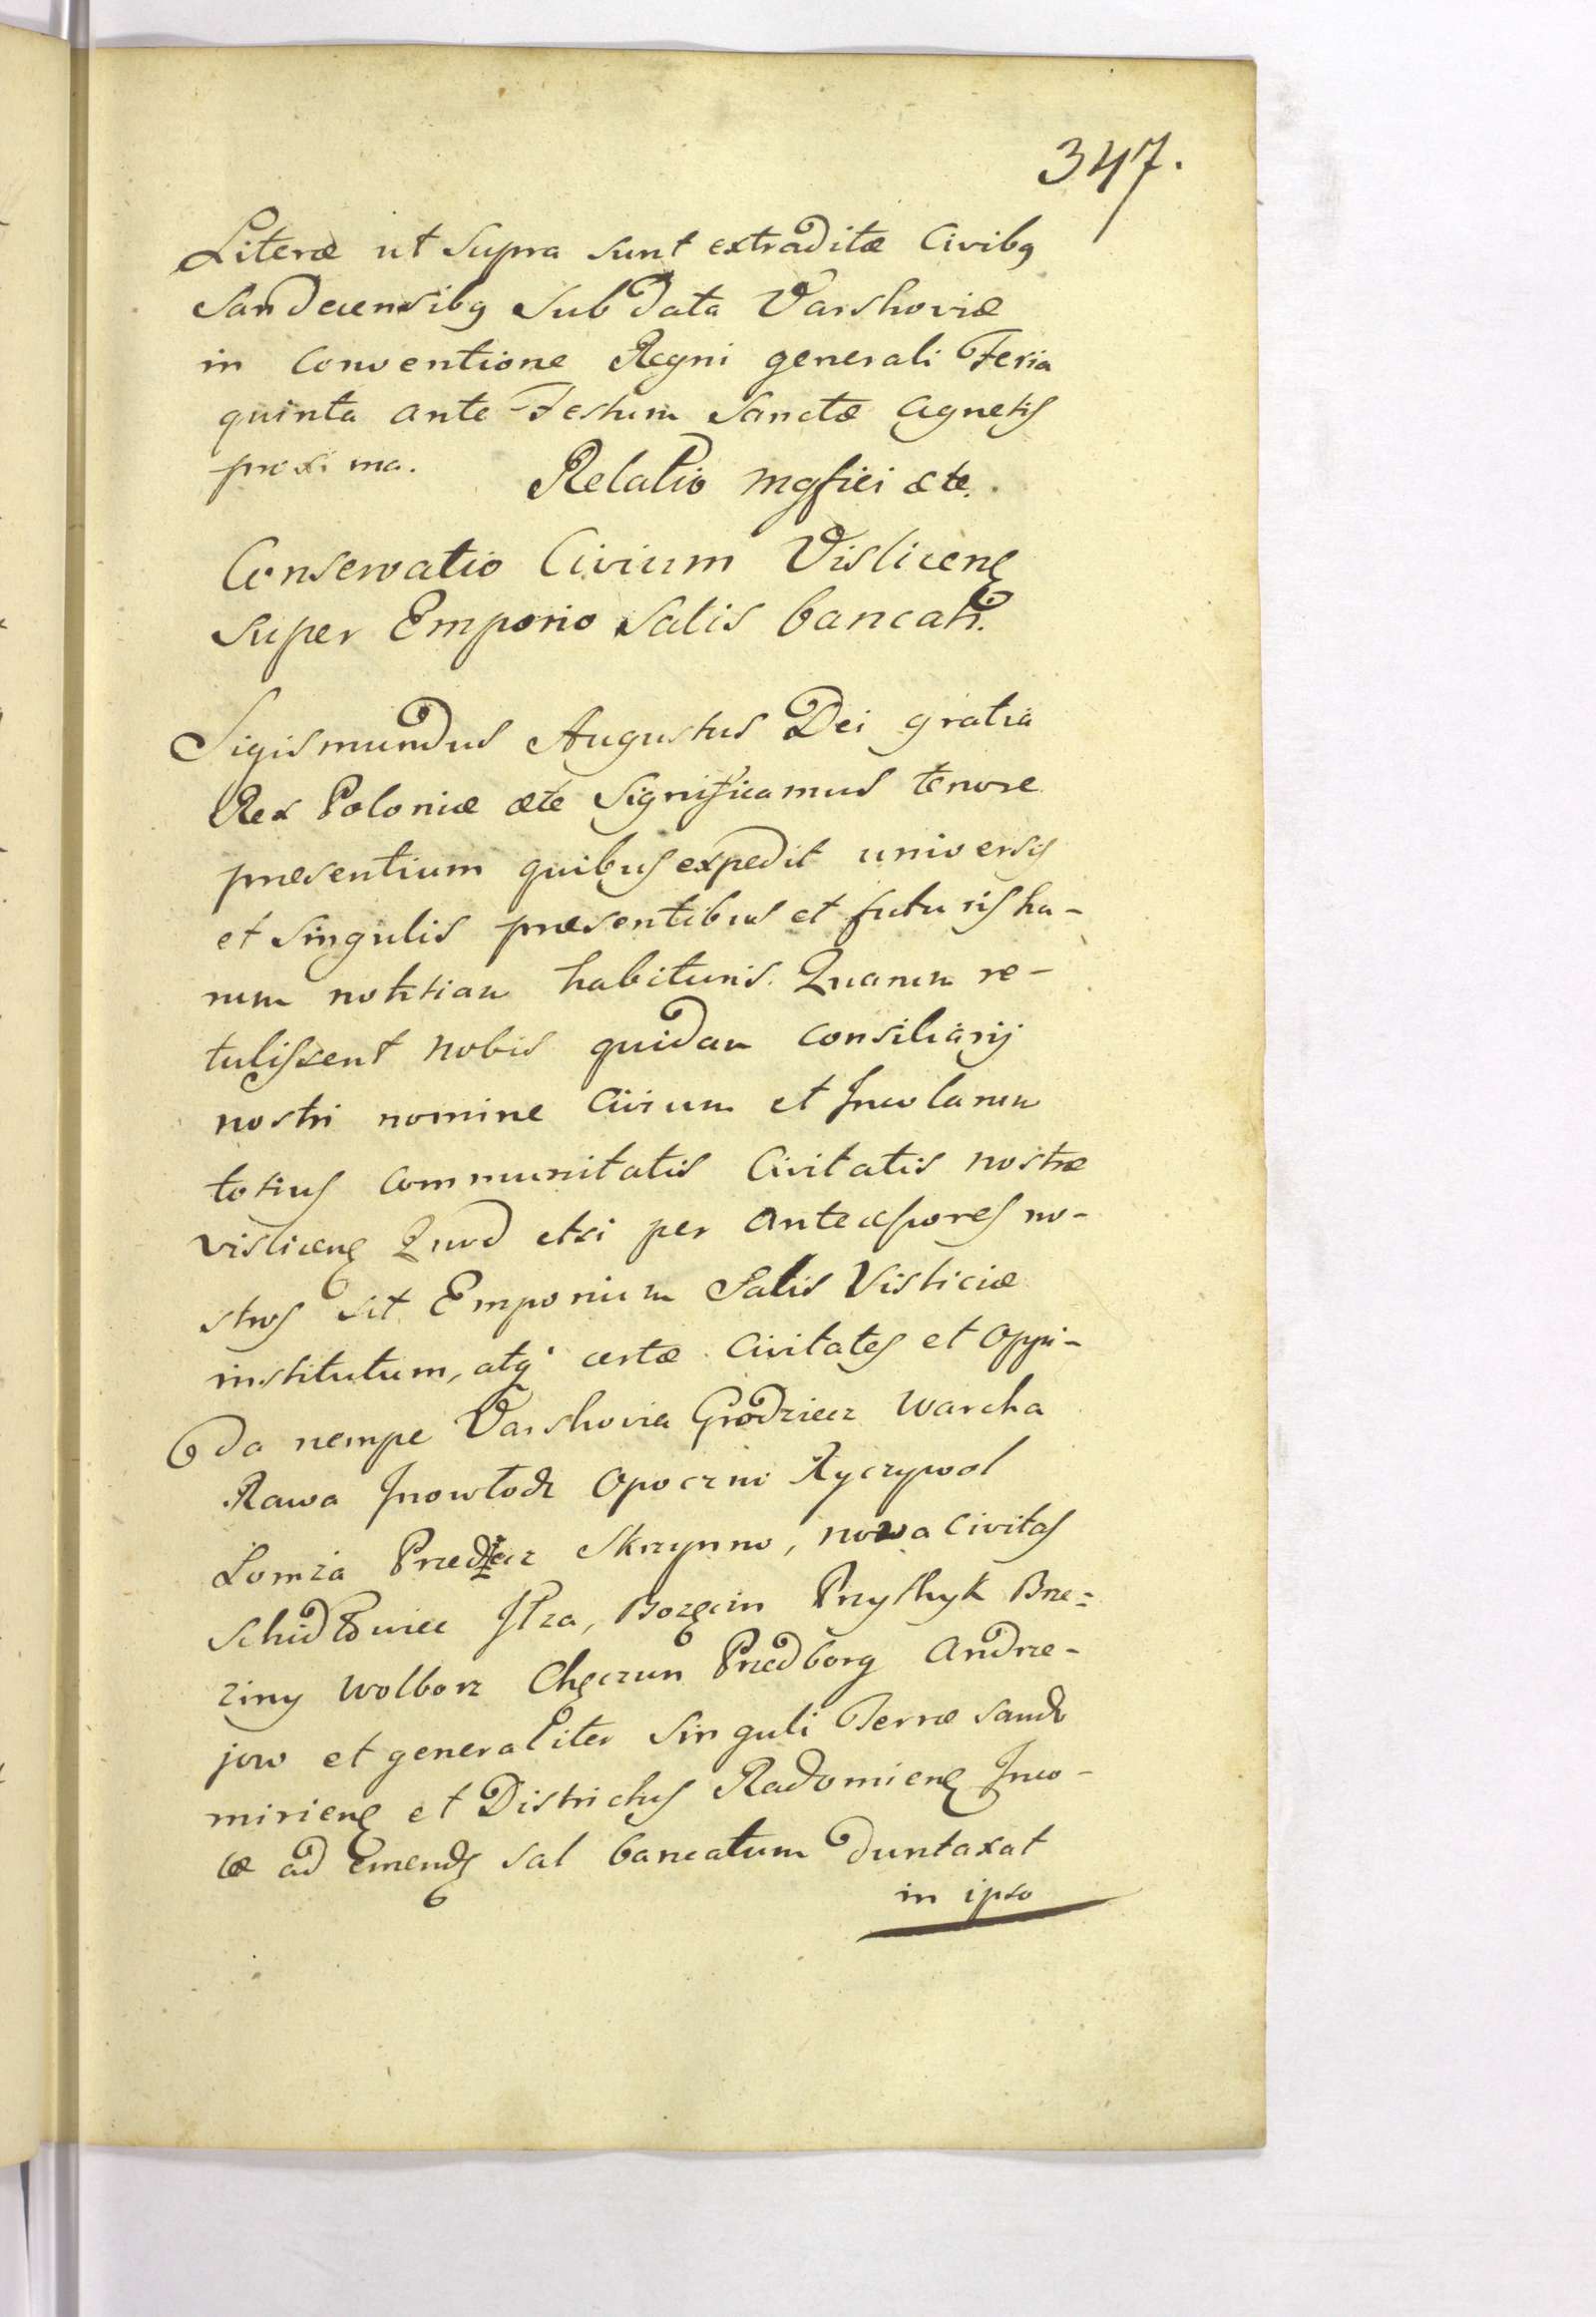 347.
Literæ ut supra sunt extraditæ Civibq
Sandecensibq sub data Varshoviæ
in Conventione Regni generali Feria
quinta ante Festum Sanctæ Agnetis
proxima. Relatio mgfici &te.
Conservatio Civium Vislicenę
super Emporio Salis bancati.
Sigismundus Augustus Dei gratia
Rex Poloniæ &te Significamus tenore
præsentium quibus expedit universis
et singulis præsentibus et futuris ha-
rum notitiam habituris. Quanm re-
tulissent nobis quidam Consiliarij
nostri nomine Civium et Incolarum
totius Communitatis Civitatis nostræ
vislicenę Quod etsi per Antecessores no-
stros sit Emporium Salis Visliciæ
institutum, atq certæ Civitates et Oppi-
da nempe Varshovia Grodziecz Warcha
Rawa Inowłodz Opoczno Ryczywol
Łomza Przedecz Skrzynno, nova Civitas
Schidłowiec Iłza, Bozęcin Przythyk Brze=
ziny Wolborz Chęczun Przedborg Andrze-
jow et generaliter Singuli Terræ Sando
mirienę et Districtus Radomienę Inco-
læ ad Emendę sal bancatum duntaxat
in ipso